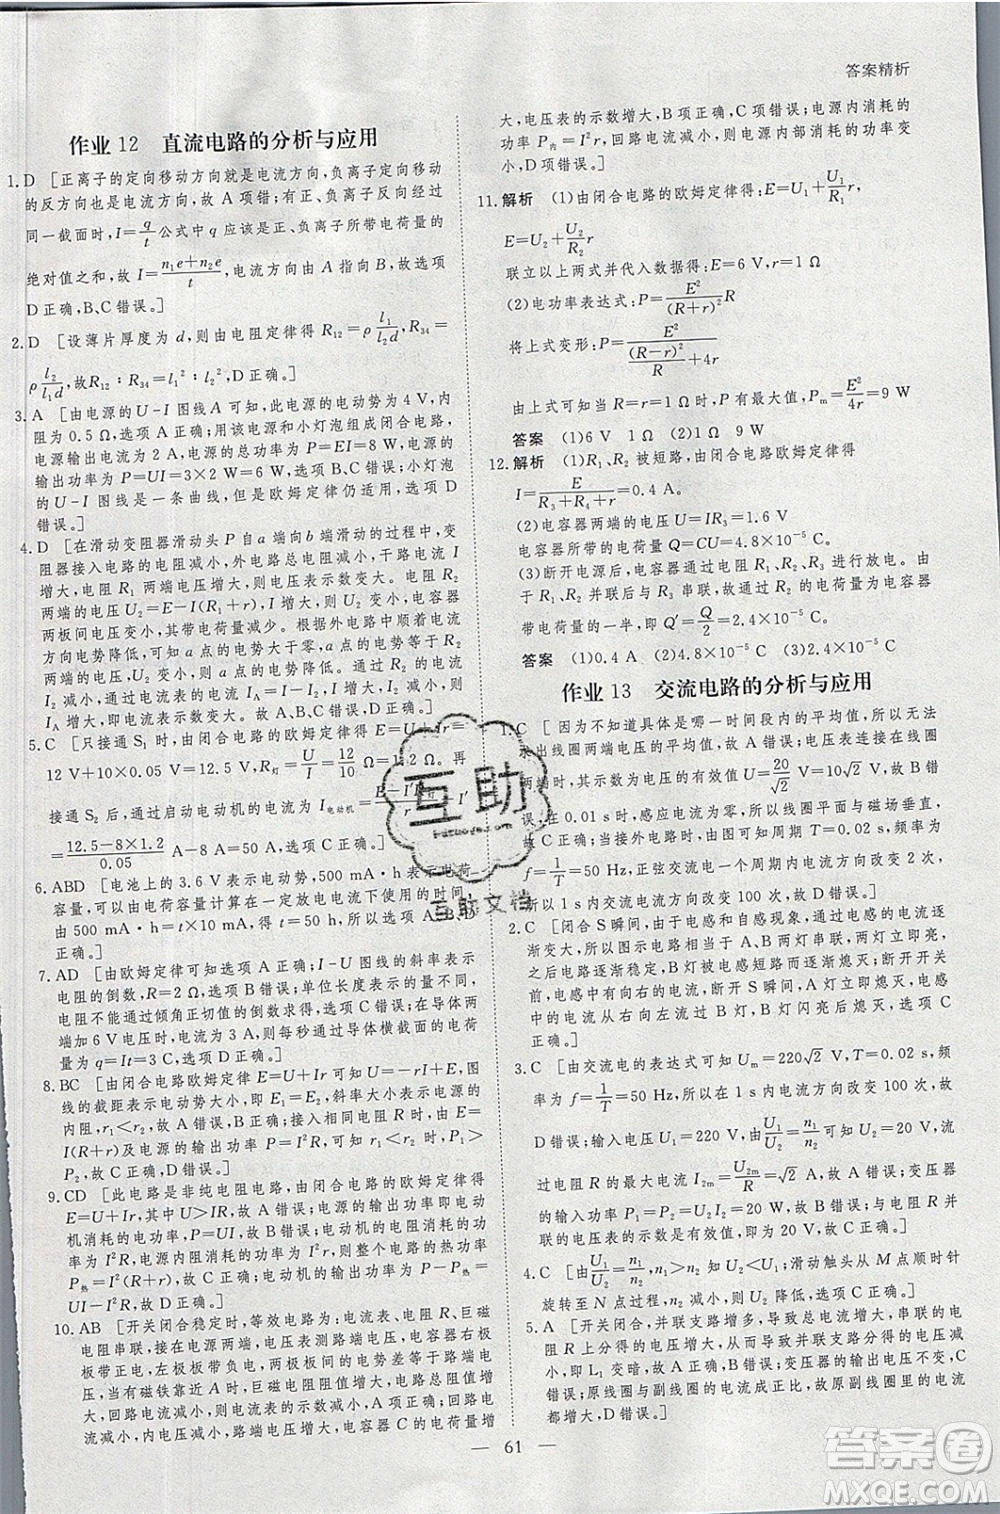 答案精析
作业 12 直流电路的分析与应用
1. D [正离子的定向移动方向就是电流方向,负离子定向移动
的反方向也是电流方向,故 A 项错误;正、负离子反向经过
同一截面时,I=q/t公式中 q 应该是正、负离子所带电荷量的
绝对值之和,故 I=(n₁e+n₂e)/t,电流方向由 A 指向 B,故选项
D 正确,A、B、C 错误。]
2. D [设薄片厚度为 d,则由电阻定律得 R₁₂=ρ l₁/(l₂d),R₃₄=
ρ l₂/(l₁d),故 R₁₂∶R₃₄=l₁²∶l₂²,D 正确。]
3. A [由电源的 U-I 图线 A 可知,此电源的电动势为 4 V,内
阻为 0.5 Ω,A 正确;用该电源和小灯泡组成闭合电路时,
电源输出电流为 2 A,电源的总功率为 P=EI=8 W,输出功
率为 P=UI=3×2 W=6 W,选项 B、C 错误;小灯泡
的 U-I 图线是一条曲线,但欧姆定律仍适用,选项 D
错误。]
4. D [在滑动变阻器滑动头 P 自 a 端向 b 端滑动的过程中,变
阻器接入电路的电阻减小,外电路总电阻减小,干路电流 I
增大,电阻 R₁ 两端电压增大,则电压表示数变大。电阻 R₂
两端的电压 U₂=E-I(R₁+r),I 增大,则 U₂ 变小,电容器
两板间电压变小,其带电荷量减少。根据外电路中顺着电流
方向,电势降低,可知 a 点的电势大于零,a 点的电势等于 R₂
两端的电压,U₂ 变小,则 a 点的电势降低,通过 R₂ 的电流
I₂ 减小,通过电流表的电流 I_A=I-I₂,I 增大,I₂ 减小,则
I_A 增大,即电流表示数变大。故选 D。]
5. C [只接通 S₁ 时,由闭合电路欧姆定律得:E=U+Ir=
12 V+10×0.05 V=12.5 V,R灯=U/I=12/10 Ω=1.2 Ω,再
接通 S₂ 后,启动电动机的电流为 I电动机=
=(12.5-8×1.2)/0.05 A-8 A=50 A,故选项 C 正确。]
6. ABD [电池上的 3.6 V 表示电动势,500 mA·h 表示电荷
容量,可以由电荷容量来计算在一定放电电流下使用的时间,
由 500 mA·h=t×10 mA 得:t=50 h,所以选项 A、B、D
正确。]
7. AD [由欧姆定律可知选项 A 正确;I-U 图线的斜率表示
电阻的倒数,R=2 Ω,选项 B 错误;单位长度表示的大小
可能不同,故不能通过倾角正切值求值,选项 C 错误;在导体两
端加 6 V 电压时,电流为 3 A,则每秒通过导体横截面的电荷
量为 q=It=3 C,选项 D 正确。]
8. BC [由闭合电路欧姆定律 E=U+Ir 可知 U=E-Ir,图
线的截距表示电动势,即 E₁=E₂,图线的斜率表示电源的
内阻,可知 r₁<r₂,A 错误,B 正确;接入相同电阻 R 时,由 E=
I(R+r)及电源的输出功率 P=I²R,可知 r₁<r₂ 时,P₁>
P₂,故 C 正确,D 错误。]
9. CD [此电路是非纯电阻电路,由闭合电路欧姆定律可得
E=U+Ir,其中 U>IR,故 A 错误;电源的输出功率即电动
机消耗的功率,P=UI,故 B 错误;电动机的线圈消耗的热功
率为 I²R,电源内阻消耗的功率为 I²r,故电路消耗总热功率
P热=I²(R+r),故 C 正确;电动机的输出功率为 P出=
UI-I²R,故 D 正确。]
10. AB [开关闭合稳定时,等效电路为:电流表、电阻 R、巨磁
电阻串联,接在电源两端,电压表测路端电压,电容器 a
板带正电,b 板带负电,两板间的场强向下,油滴带负电,A
正确;当磁铁靠近 GMR 时,巨磁电阻阻值增大,则回路电
流减小,电流表示数减小,C 错误;电阻 R 两端的电压减
小,内电压减小,路端电压增大,电容器 C 的电荷量增
大,电压表的示数增大,B 项正确、C 错误;电源内消耗的
功率 P内=I²r,回路电流减小,电源内部消耗的功率变
小,D 错误。]
11. 解析 (1)由闭合电路的欧姆定律得:E=U₁+(U₁/R₁)r,
E=U₂+(U₂/R₂)r
联立以上两式并代入数据得:E=6 V,r=1 Ω
(2)电功率表达式:P=E²/(R+r)² R
将上式变形:P=E²/((R-r)²/R+4r)
由上式可知 R=r=1 Ω 时,P 有最大值,Pₘ=E²/4r=9 W
答案 (1)6 V 1 Ω (2)1 Ω 9 W
12. 解析 (1)R₁、R₂ 被短路,由闭合电路欧姆定律得
I=E/(R₃+R₄+r)=0.4 A。
(2)电容器两端的电压 U=IR₃=1.6 V
电容器所带的电荷量 Q=CU=4.8×10⁻⁵ C
(3)断开电源后,电容器通过电阻放电,电路结构为
电阻 R₁、R₂ 串联后与 R₃ 并联,所以通过 R₂ 的电荷量为电容器
带电荷量的一半,即 Q′=Q/2=2.4×10⁻⁵ C
答案 (1)0.4 A (2)4.8×10⁻⁵ C (3)2.4×10⁻⁵ C
作业 13 交流电路的分析与应用
1. C [因为不知道具体是哪一时间段内的平均值,所以无法
求出线圈两端电压的平均值,故 A 错误;电压表接在线圈
两端时,其示数为电压的有效值,故 U=20/√2 V=10√2 V,故 B 错
误;在 0.01 s 时,感应电动势为零,所以线圈平面与磁场垂直,
故 C 正确;当接外电路时,由于周期 T=0.02 s,频率为
f=1/T=50 Hz,线圈中电流一个周期内方向改变 2 次,
所以 1 s 内电流方向改变 100 次,故 D 错误。]
2. C [闭合 S 瞬间,由于电感和自感现象,通过两灯的电流
渐变大,所以图示电路中 A、B 两灯串联,两灯应同时逐
渐变亮,电路逐渐稳定,B 灯被电感线圈短路逐渐熄灭;断开开关
S 瞬间,A 灯立即熄灭,B 灯闪亮后熄灭,选项 C
正确。]
3. C [由交流电的表达式可知 Uₘ=220√2 V,T=0.02 s,故频
率为 f=1/T=50 Hz,所以在 1 s 内电流方向改变 100 次,故
D 错误;输入电压 U₁=220 V,由 U₁/U₂=n₁/n₂
过电阻 R 的最大电流 I₂ₘ=U₂ₘ/R=√2 A,故 A 错误;变压器
输入功率等于输出功率,P₁=P₂=
压表的示数是有效值,即为 20 V,故 C 正确。]
4. C [由U₁/U₂=n₁/n₂,n₁>n₂,可知 U₂<U₁;滑动触头从 M 点顺时针
旋转至 N 点过程,n₂ 减小,电压降低,C 项正确。]
5. A [开关闭合时,并联支路增多,导致总电流增大,串联的电
阻 R 两端电压增大,所以并联支路部分电压减小,
即 L₁ 变暗,故 A 正确;由于副线圈电压不变,所以 B、C
错误;原线圈与副线圈电流成正比,副线圈电流增大,原线圈电
流也增大,D 错误。]
互助
互助文档
答案圈
MXQE.COM
61